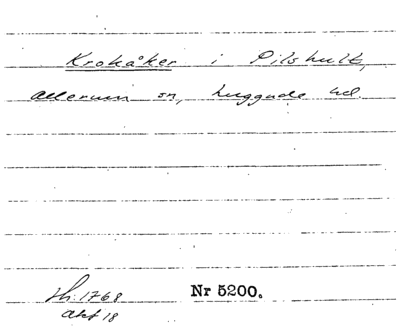 Krokåker i Pilshult,
Allerum sn, Luggude hd.
Nr 5200.
1768
akt 18